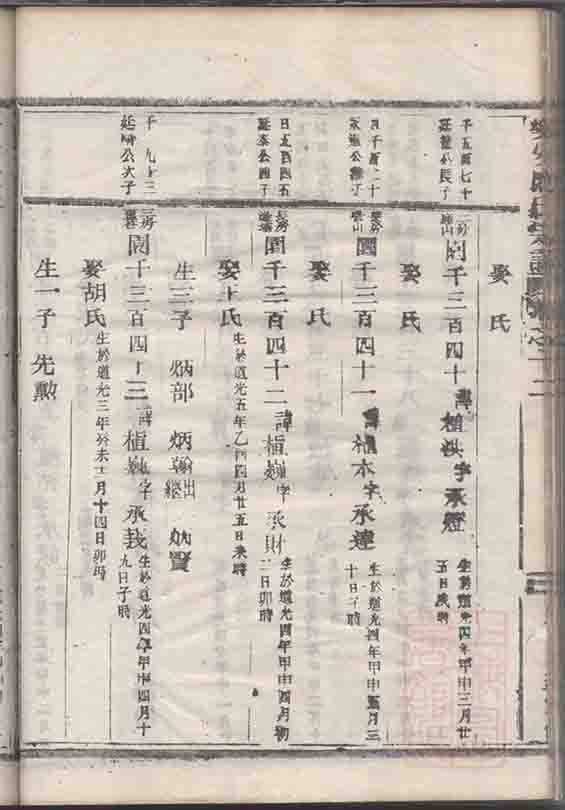 千五百七十
延龍公長子
園千三百四十 諱植洪字承燈 生於道光四年甲申三月廿五日戌時
娶 氏
四千百二十
房園千三百四十一 諱植本字承達 生於道光四年甲申五月三十日子時
娶 氏
日五百四五
延泰公四子
長房園千三百四十二 諱植巍字承財 生於道光四年甲申四月初二日卯時
娶王氏 生於道光五年乙酉四月廿五日未時
生三子 炳部 炳翰出繼 炳賢
千 九十三
延 公次子
三房園千三百四十三 諱植巍字承栽 生於道光四年甲申四月十九日子時
娶胡氏 生於道光三年癸未十二月十四日卯時
生一子 先勲